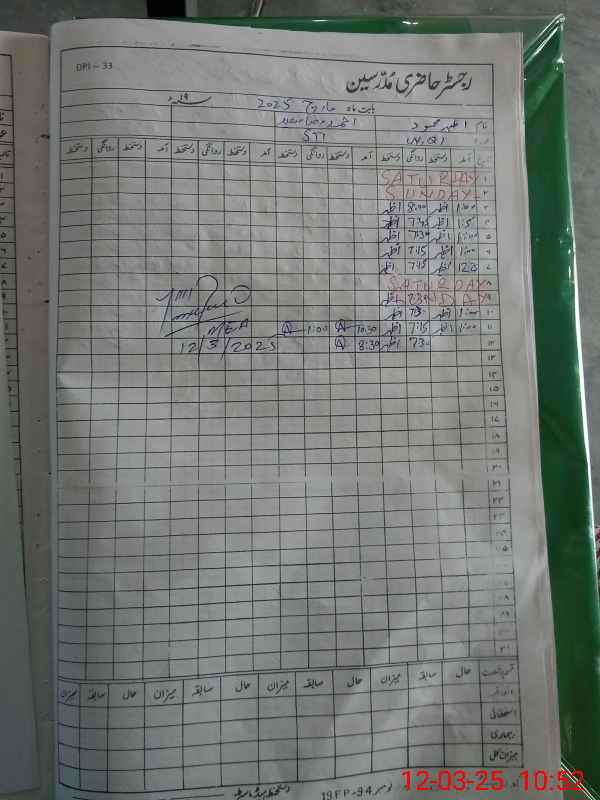 DPI - 33
رجسٹر حاضری مدرسین
بابت ماہ مارچ 2025
نام اطہر محمود
STI
تاریخ آمد دستخط روانگی دستخط آمد دستخط روانگی دستخط آمد دستخط روانگی دستخط آمد دستخط روانگی دستخط
۱ SATURDAY
۲ SUNDAY
۳ 1:00 اطہر 8:00 اطہر
۴ اطہر 7:45 اطہر
۵ 1:00 اطہر 7:30 اطہر
۶ 1:00 اطہر 7:15 اطہر
۷ اطہر 7:15 اطہر
۸ SATURDAY
۹ SUNDAY
۱۰ 1:00 اطہر 7:30 اطہر
۱۱ 1:00 اطہر 7:15 اطہر 10:30 A 1:00 A
۱۲ 7:30 اطہر 8:30 A
MEA
12/3/2025
۱۳
۱۴
۱۵
۱۶
۱۷
۱۸
۱۹
۲۰
۲۱
۲۲
۲۳
۲۴
۲۵
۲۶
۲۷
۲۸
۲۹
۳۰
۳۱
قسم رخصت حال سابقہ میزان حال سابقہ میزان حال سابقہ میزان حال سابقہ میزان
اتفاقیہ
استحقاقی
بیماری
میزان کل
دستخط ہیڈ ماسٹر
19FP-94
12-03-25 10:52